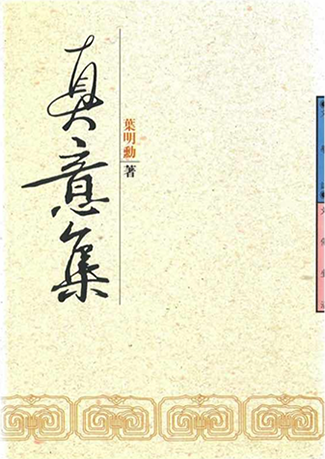 真意集
葉明勳 著